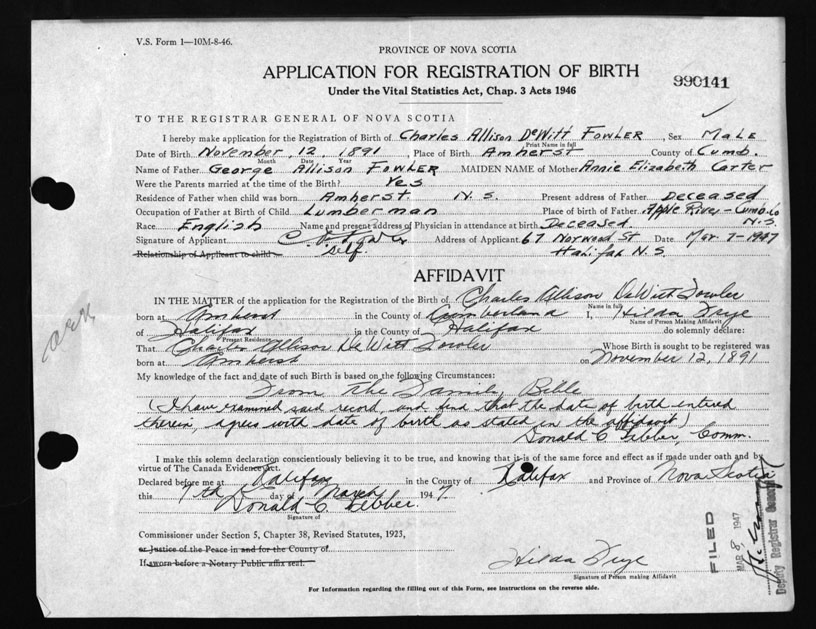 V.S. Form 1—10M-8-46.
PROVINCE OF NOVA SCOTIA
APPLICATION FOR REGISTRATION OF BIRTH
990141
Under the Vital Statistics Act, Chap. 3 Acts 1946
TO THE REGISTRAR GENERAL OF NOVA SCOTIA
I hereby make application for the Registration of Birth of Charles Allison DeWitt FOWLER, Sex MALE
Print Name in full
Date of Birth November, 12, 1891, Place of Birth Amherst County of Cumb.
Month Date Year
Name of Father George Allison FOWLER MAIDEN NAME of Mother Annie Elizabeth Carter
Were the Parents married at the time of the Birth? Yes
Residence of Father when child was born Amherst. N.S. Present address of Father Deceased
Occupation of Father at Birth of Child Lumberman Place of birth of Father Apple River - Cumb. Co N.S.
Race English Name and present address of Physician in attendance at birth Deceased.
Signature of Applicant C A Fowler Address of Applicant 67 Norwood St Date Mar. 7-1947
Relationship of Applicant to child self. Halifax N.S.
AFFIDAVIT
IN THE MATTER of the application for the Registration of the Birth of Charles Allison DeWitt Fowler
Name in full
born at Amherst in the County of Cumberland I, Hilda Frye
Name of Person Making Affidavit
of Halifax in the County of Halifax do solemnly declare:
Present Residence
That Charles Allison DeWitt Fowler Whose Birth is sought to be registered was
born at Amherst on November 12, 1891
My knowledge of the fact and date of such Birth is based on the following Circumstances:
From The Family Bible
(I have examined said record, and find that the date of birth entered
therein, agrees with date of birth as stated in the affidavit)
Donald C Comm.
I make this solemn declaration conscientiously believing it to be true, and knowing that it is of the same force and effect as if made under oath and by
virtue of The Canada Evidence Act.
Declared before me at Halifax in the County of Halifax and Province of Nova Scotia
this 7th day of March 1947
Donald C
Signature of
Commissioner under Section 5, Chapter 38, Revised Statutes, 1923,
or Justice of the Peace in and for the County of
If sworn before a Notary Public affix seal.
Hilda Frye
Signature of Person making Affidavit
For Information regarding the filling out of this Form, see instructions on the reverse side.
FILED
MAR 8 1947
Deputy Registrar General